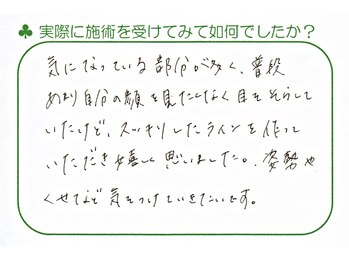 ♣ 実際に施術を受けてみて如何でしたか？
気になっている部分が多く、普段
あまり自分の顔を見たくなく目をそらして
いたけど、スッキリしたラインを作って
いただき嬉しく思いました。姿勢や
くせなど気をつけていきたいです。